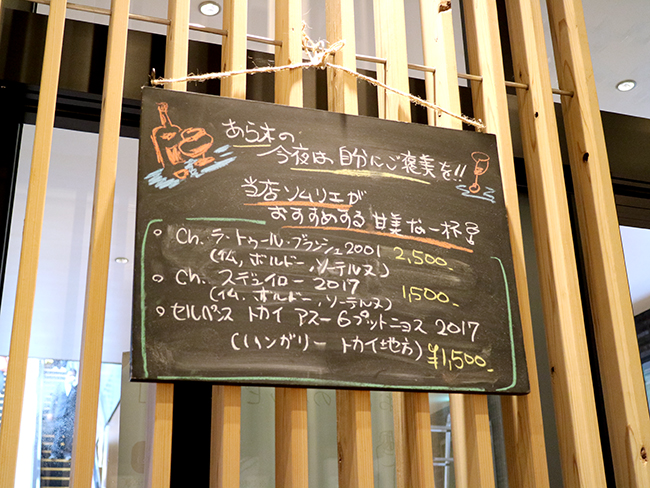 あら木の
今夜は自分にご褒美を!!
当店ソムリエが
おすすめする 甘美な一杯
Ch. ラ・トゥール・ブランシュ2001 2,500-
(仏, ボルドー, ソーテルヌ)
Ch. スデュイロー 2017 1,500-
(仏, ボルドー, ソーテルヌ)
セルペンス トカイ アスー 6プットニョス 2017
(ハンガリー トカイ地方) ¥1,500-